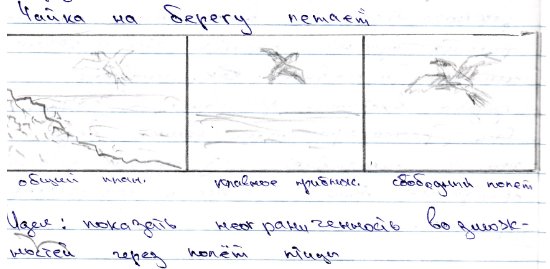 Чайка на берегу летает
общий план. плавное приближ. свободный полет
Идея: показать неограниченность возмож-
ностей через полёт птицы